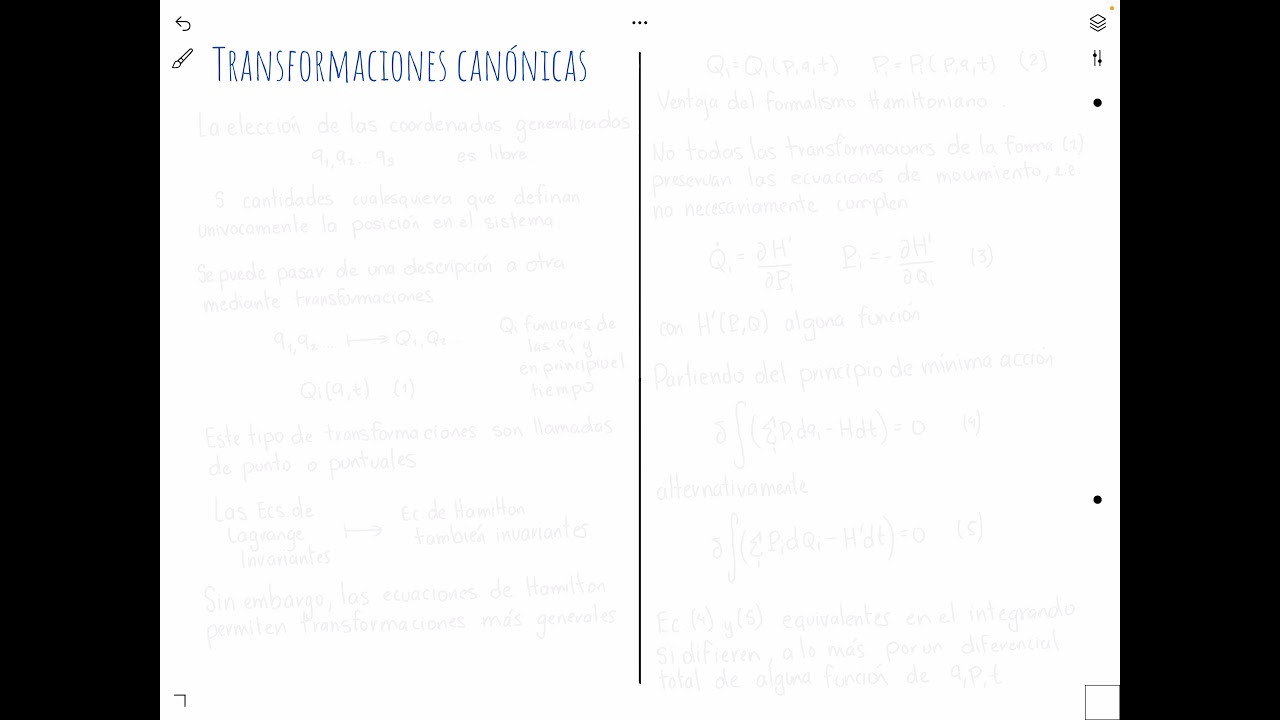 TRANSFORMACIONES CANÓNICAS
La elección de las coordenadas generalizadas
q₁,q₂ ... qₛ es libre.
S cantidades cualesquiera que definan
univocamente la posición en el sistema
Se puede pasar de una descripción a otra
mediante transformaciones
q₁,q₂ ... ⟼ Q₁,Q₂ ...
Qi funciones de
las qi y
en principio el
tiempo
Qi(q,t) (1)
Este tipo de transformaciones son llamadas
de punto o puntuales
Las Ecs de
Lagrange
Invariantes
⟼
Ec. de Hamilton
también invariantes
Sin embargo, las ecuaciones de Hamilton
permiten transformaciones más generales
Qi = Qi(p,q,t) Pi = Pi(p,q,t) (2)
Ventaja del formalismo Hamiltoniano.
No todas las transformaciones de la forma (2)
preservan las ecuaciones de movimiento, i.e.
no necesariamente cumplen
Q̇i = ∂H'/∂Pi Ṗi = - ∂H'/∂Qi (3)
con H'(P,Q) alguna función
Partiendo del principio de mínima acción
δ∫(∑i Pi dqi - Hdt) = 0 (4)
alternativamente
δ∫(∑i Pi dQi - H'dt) = 0 (5)
Ec (4) y (5) equivalentes en el integrando
Si difieren, a lo más por un diferencial
total de alguna función de q,p,t